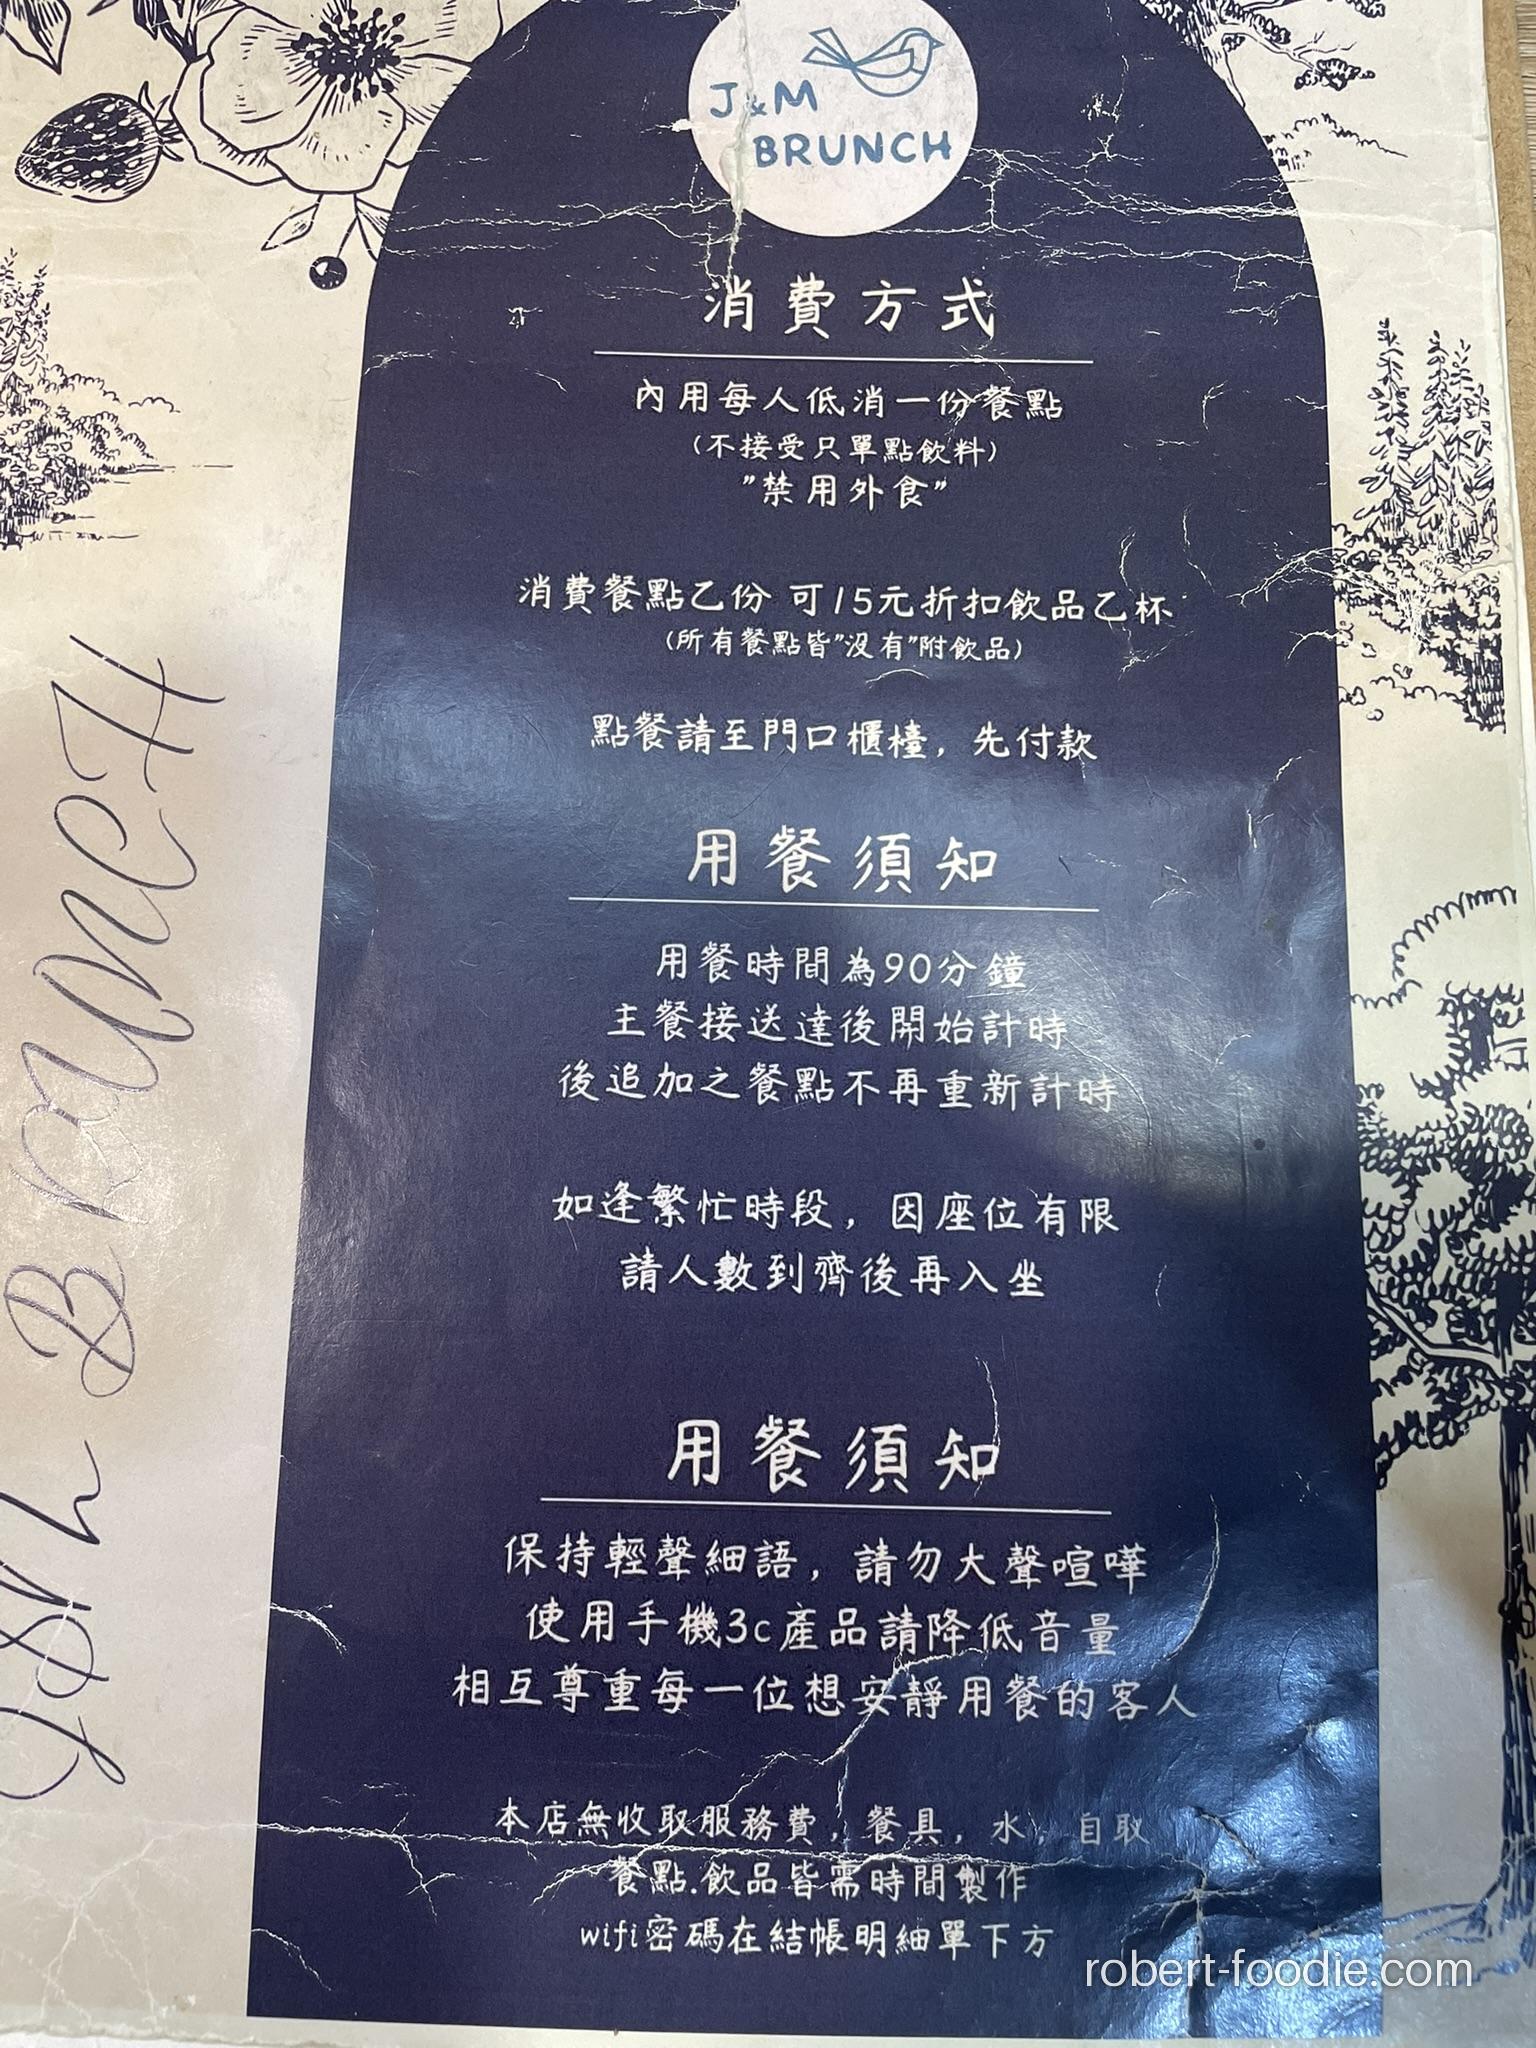 J&M
BRUNCH
消費方式
內用每人低消一份餐點
(不接受只單點飲料)
"禁用外食"
消費餐點乙份 可15元折扣飲品乙杯
(所有餐點皆"沒有"附飲品)
點餐請至門口櫃檯，先付款
用餐須知
用餐時間為90分鐘
主餐接送達後開始計時
後追加之餐點不再重新計時
如逢繁忙時段，因座位有限
請人數到齊後再入坐
用餐須知
保持輕聲細語，請勿大聲喧嘩
使用手機3c產品請降低音量
相互尊重每一位想安靜用餐的客人
本店無收取服務費，餐具，水，自取
餐點.飲品皆需時間製作
wifi密碼在結帳明細單下方
J&M BRUNCH
robert-foodie.com